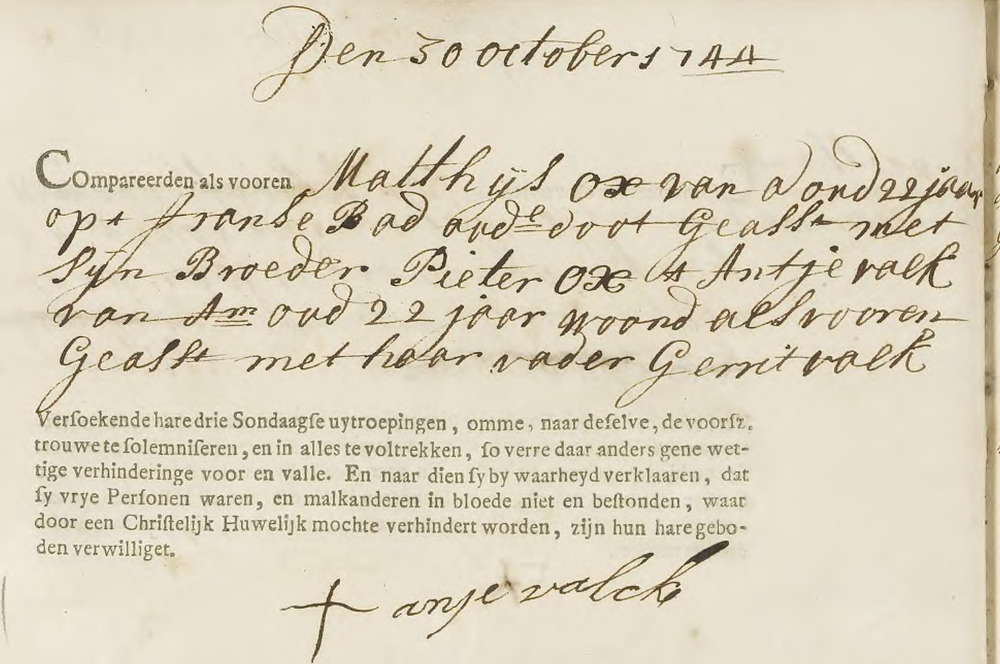 Den 30 October 1744
Compareerden als vooren Matthijs Ox van A oud 22 jaar
op t franse Pad oud.s doot Geasst met
Sijn Broeder Pieter Ox & Antje valk
van Am oud 22 jaar woond als vooren
Geasst met haar vader Gerrit valk
Versoekende hare drie Sondaagse uytroepingen, omme, naar deselve, de voorsz.
trouwe te solemniseren, en in alles te voltrekken, so verre daar anders gene wet-
tige verhinderinge voor en valle. En naar dien sy by waarheyd verklaaren, dat
sy vrye Persoonen waren, en malkanderen in bloede niet en bestonden, waar
door een Christelijk Huwelijk mochte verhindert worden, zijn hun hare gebo-
den verwilliget.
anje valck